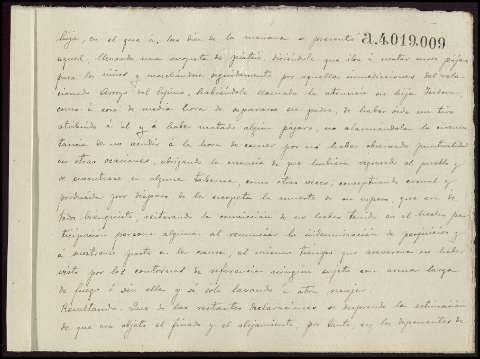 hija, en el que á las diez de la mañana se presentó
a.4.019.009
aquel, llevando una escopeta de pistón, diciéndole que iba á matar unos pájaros
para los niños y marchándose seguidamente por aquellas inmediaciones del
cionado Arroyo del Espino, habiéndole llamado la atención su hija Isidora,
como á cosa de media hora de separarse su padre, de haber oido un tiro
atribuido á él y á haber matado algun pájaro, no alarmandola la circuns
tancia de no acudir á la hora de comer por no haber observado puntualidad
en otras ocasiones, abrigando la creencia de que hubiera regresado al pueblo y
se encontrase en alguna taberna, como otras veces, conceptuando casual y
producida por disparo de la escopeta la muerte de su esposo, que era de
todo bienquisto, reiterando la convicción de no haber tenido en el hecho par
ticipación persona alguna al renunciar la indemnización de perjuicios y
á mostrarse parte en la causa, al mismo tiempo que asevera no haber
visto por los contornos de referencia ningún sujeto con arma larga
de fuego ó sin ella y si sólo lavando á otra mujer.
Resultando: Que de las restantes declaraciones se desprende la estimación
de que era objeto el finado y el alejamiento, por tanto, en los deponentes de